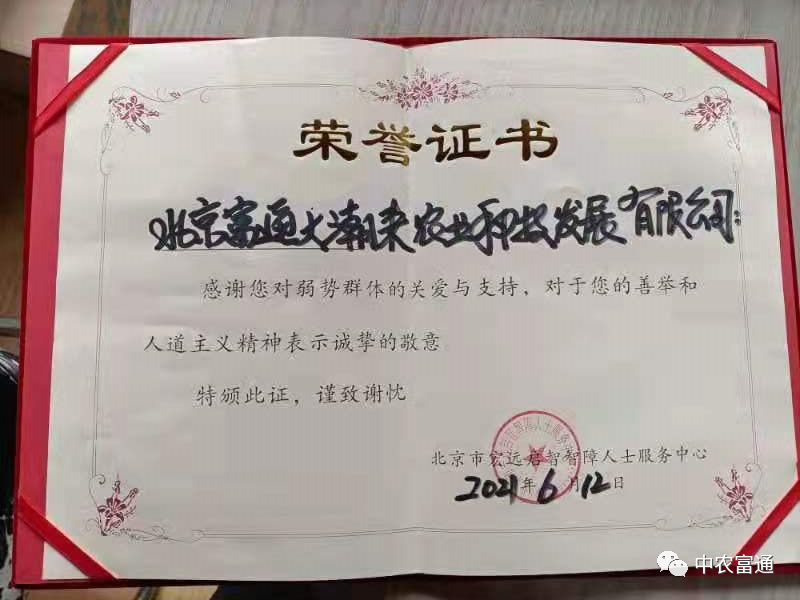 荣誉证书
北京富通大潮来农业科技发展有限公司:
感谢您对弱势群体的关爱与支持,对于您的善举和
人道主义精神表示诚挚的敬意
特颁此证,谨致谢忱
北京市宏远启智智障人士服务中心
2021年6月12日
中农富通